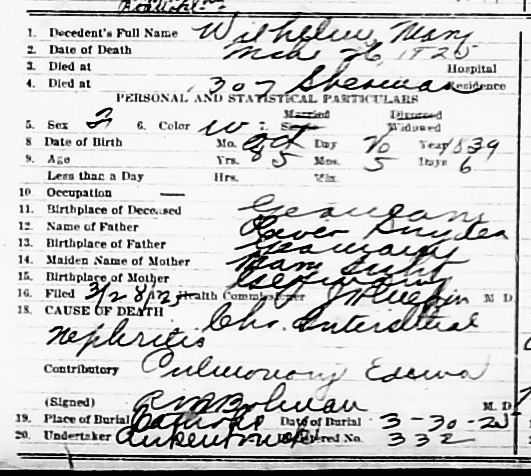 1. Decedent's Full Name Wilhelm, Mary
2. Date of Death Mch 26, 1925
3. Died at Hospital
4. Died at 307 Sherman Residence
PERSONAL AND STATISTICAL PARTICULARS
Married Divorced
5. Sex F 6. Color W : Single Widowed
8 Date of Birth Mo. Oct Day 20 Year 1839
9. Age Yrs. 85 Mos. 5 Days 6
Less than a Day Hrs. Min.
10 Occupation —
11. Birthplace of Deceased Germany
12. Name of Father Snyder
13. Birthplace of Father Germany
14. Maiden Name of Mother Mary
15. Birthplace of Mother Germany
16. Filed 3/28/25 Health Commissioner M D.
18. CAUSE OF DEATH Chr. Interstitial
Nephritis
Contributory Pulmonary Edema
(Signed) M. D.
19. Place of Burial Catholic Date of Burial 3-30-25
20. Undertaker No. 332